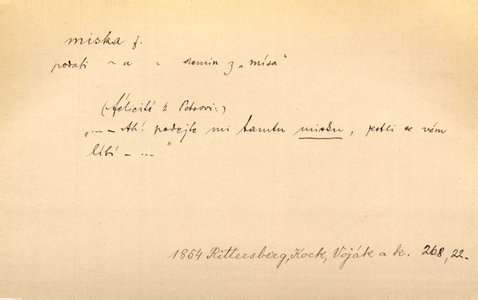 miska f.
podati ~ u " demin z „mísa“
(Félicité k Petrovi:)
„... – Ah! podejte mi tamtu misku, jestli se vám
líbí – ...“
1854 Rittersberg, Kock, Voják a k. 268, 22.